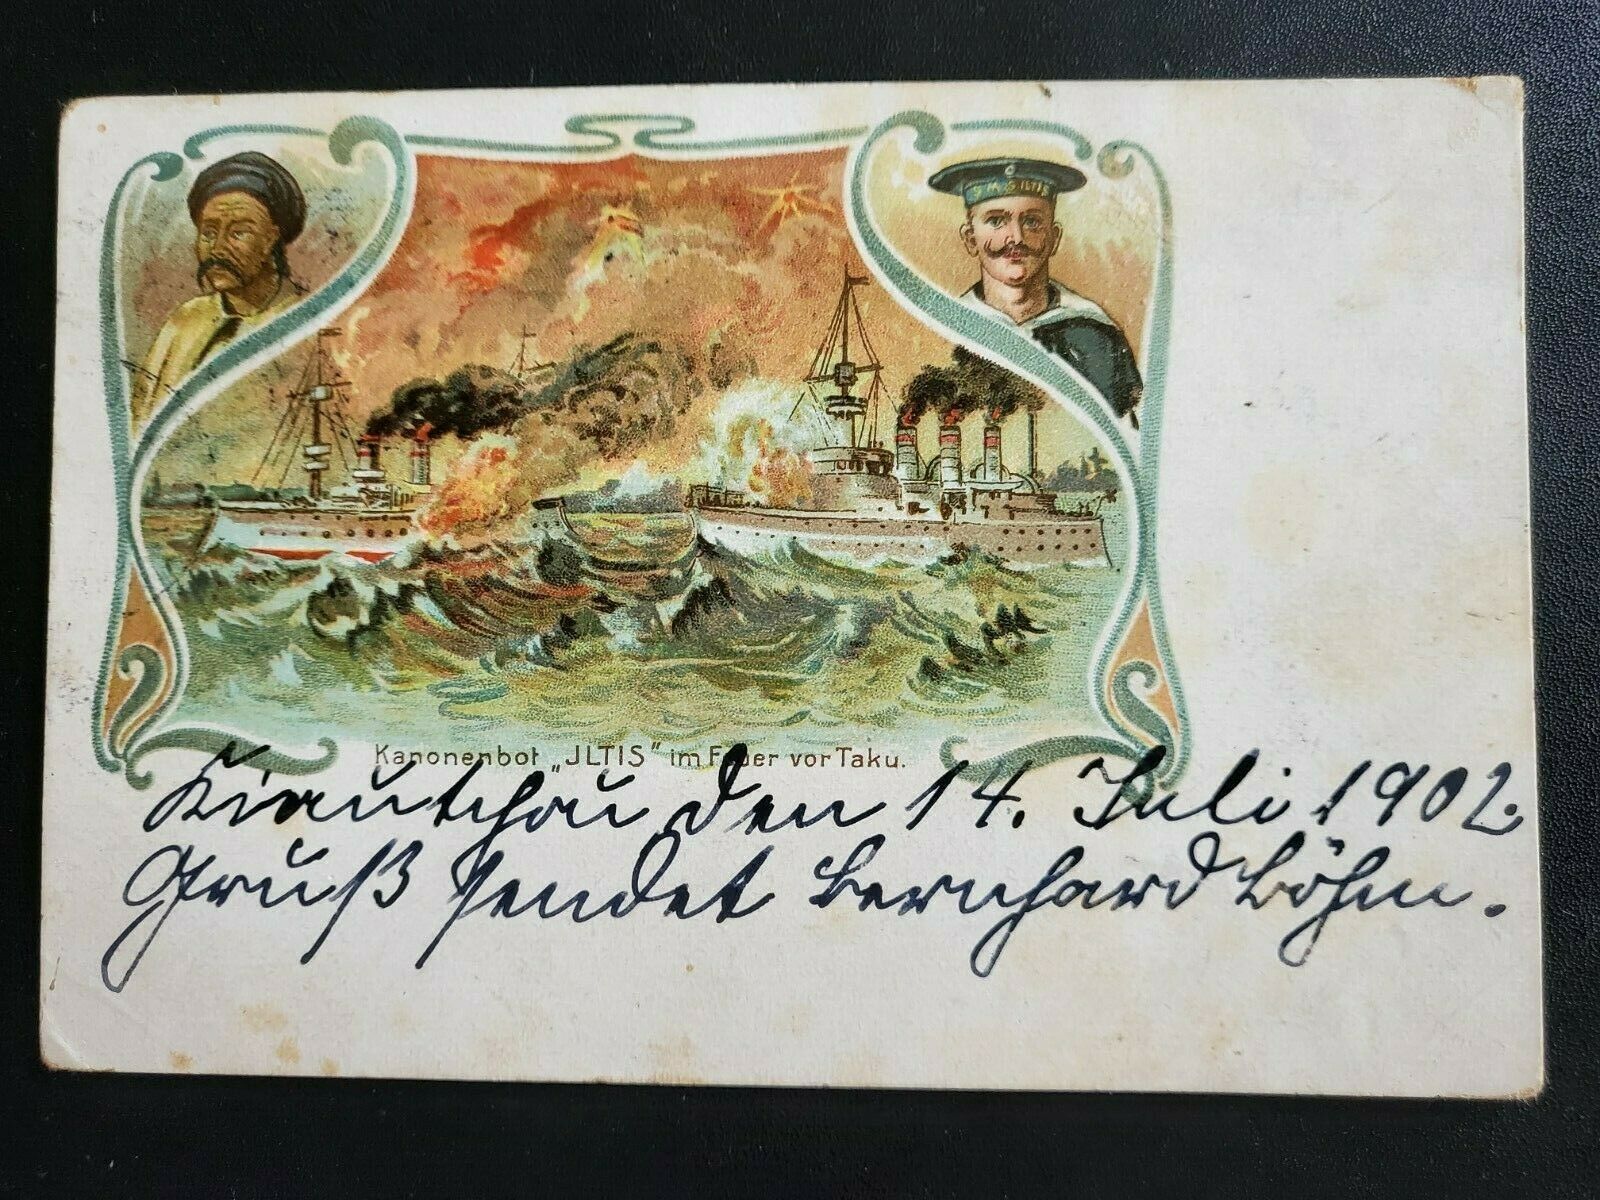 S.M.S ILTIS
Kanonenbot „JLTIS" im Feuer vor Taku.
Kiautchou, den 14. Juli 1902.
Gruß sendet Bernhard Böhm.